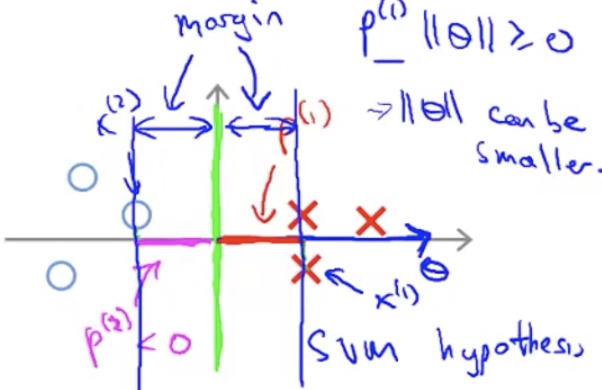 margin
p⁽¹⁾ ||θ|| ≥ 0
→ ||θ|| can be
smaller.
x⁽²⁾
p⁽¹⁾
θ
x⁽¹⁾
p⁽²⁾ < 0
SVM hypothesis